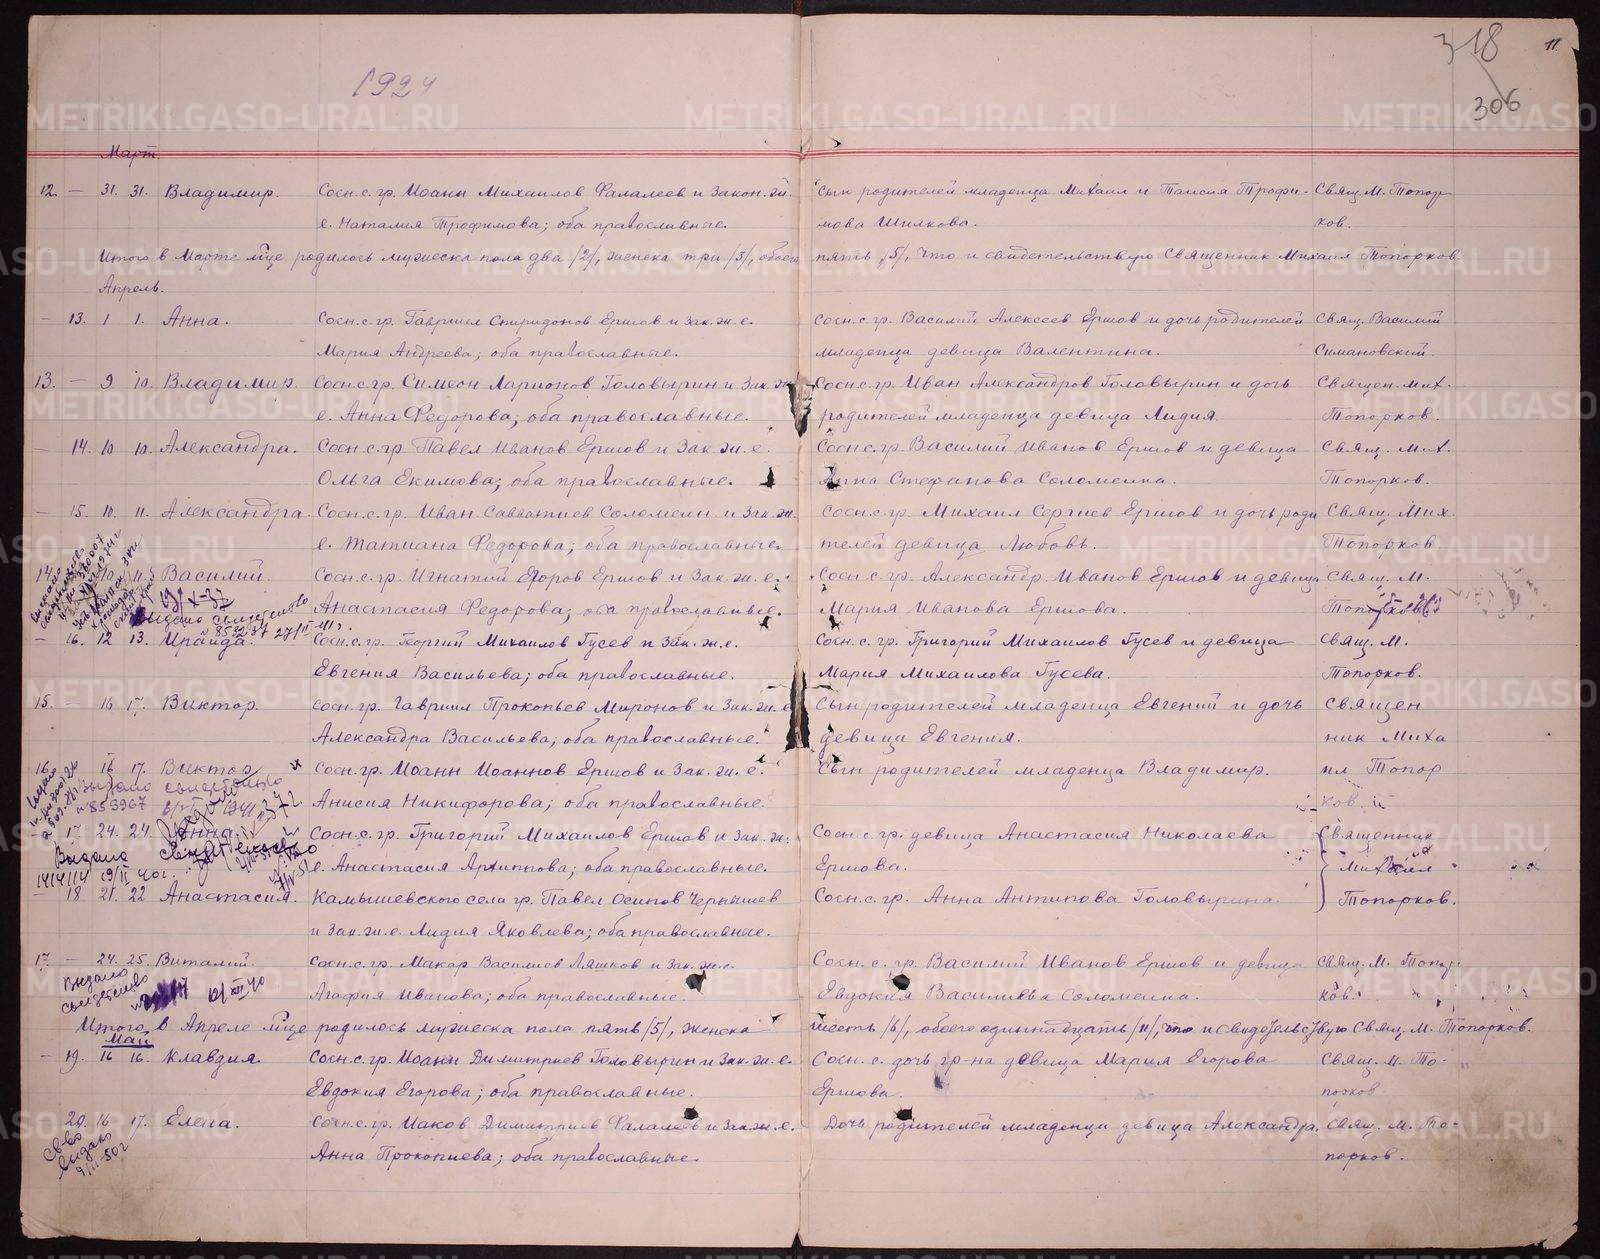 1924
318
306
11
Март.
12. — 31. 31. Владимир. Сосн. с. гр. Иоанн Михаилов Фалалеев и закон. ж. сын родителей младенца Михаил и Таисия Трофи- Свящ. М. Топор
е. Наталия Трофимова; оба православные. мова Шилкова. ков.
Итого в Марте м-це родилось мужеска пола два /2/, женска три /3/, обоего пять /5/, что и свидетельствую Священник Михаил Топорков
Апрель.
— 13. 1 1. Анна. Сосн. с гр. Гавриил Спиридонов Ершов и зак. ж. е. Сосн. с гр. Василий Алексеев Ершов и дочь родителей Свящ. Василий
Мария Андреева; оба православные. младенца девица Валентина. Симановский.
13. — 9 10. Владимир. Сосн. с. гр. Симеон Ларионов Головырин и Зак. ж Сосн. с. гр. Иван Александров Головырин и дочь Священ. Мих.
е. Анна Федорова; оба православные. родителей младенца девица Лидия. Топорков.
— 14. 10 10. Александра. Сосн. с. гр. Павел Иванов Ершов и Зак. ж. е. Сосн. с. гр. Василий Иванов Ершов и девица Свящ. Мих.
Ольга Екимова; оба православные. Анна Стефанова Соломеина. Топорков.
— 15. 10. 11. Александра. Сосн. с. гр. Иван Савватиев Соломеин и Зак. ж. Сосн. с гр. Михаил Сергиев Ершов и дочь роди Свящ. Мих.
е. Татиана Федорова; оба православные. телей девица Любовь. Топорков.
14. — 10 11. Василий. Сосн. с. гр. Игнатий Егоров Ершов и Зак. ж. е. Сосн. с. гр. Александр Иванов Ершов и девица Свящ. М.
Анастасия Федорова; оба православные. Мария Иванова Ершова. Топорков
Выдано свидетельство
— 16. 12 13. Ираида. Сосн. с. гр. Георгий Михаилов Гусев и Зак. ж. е. Сосн. с. гр. Григорий Михаилов Гусев и девица Свящ. М.
Евгения Васильева; оба православные. Мария Михаилова Гусева. Топорков.
15. — 16 17. Виктор. Сосн. гр. Гавриил Прокопьев Миронов и Зак. ж. е Сын родителей младенца Евгений и дочь Священ
Александра Васильева; оба православные. девица Евгения. ник Миха
16. 16 17. Виктор Сосн. гр. Иоанн Иоаннов Ершов и Зак. ж. е. Сын родителей младенца Владимир. ил Топор
Выдано свидетельство
№ 853967
Анисия Никифорова; оба православные. ков.
— 17. 24. 24. Анна. Сосн. с. гр. Григорий Михаилов Ершов и Зак. ж. Сосн. с. гр. девица Анастасия Николаева Священник
Выдано свидетельство
е. Анастасия Архиппова; оба православные. Ершова. Михаил
— 18 21. 22 Анастасия. Камышевского села гр. Павел Осипов Чернышев Сосн. с. гр. Анна Антипова Головырина. Топорков.
и Зак. ж. е. Лидия Яковлева; оба православные.
17. — 24. 25. Виталий. Сосн. с. гр. Макар Василиев Ляшков и Зак. ж. е. Сосн. с. гр. Василий Иванов Ершов и девица Свящ. М. Топор
Выдано
свидетельство
Агафия Иванова; оба православные. Евдокия Василиева Соломеина. ков.
Итого в Апреле м-це родилось мужеска пола пять /5/, женска шесть /6/, обоего одиннадцать /11/, что и свидетельствую Свящ. М. Топорков.
Май
— 19. 16 16. Клавдия. Сосн. с. гр. Иоанн Димитриев Головырин и Зак. ж. е. Сосн. с. дочь гр-на девица Мария Егорова Свящ. М. То-
Евдокия Егорова; оба православные. Ершова. порков
20. 16 17. Елена. Сосн. с. гр. Иаков Димитриев Фалалеев и Зак. ж. е. Дочь родителей младенца девица Александра. Свящ. М. То-
Анна Прокопиева; оба православные. порков.
Св-во
выдано